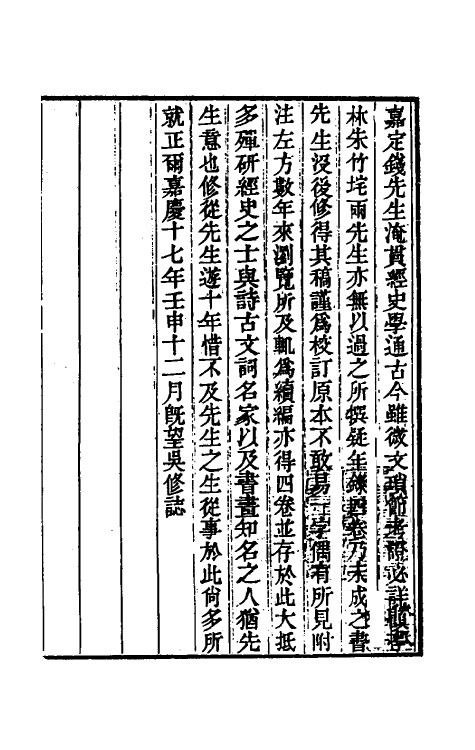 嘉定錢先生淹貫經史學通古今雖微文瑣節考證必詳顧亭
林朱竹垞兩先生亦無以過之所撰疑年錄四卷乃未成之書
先生沒後修得其稿謹為校訂原本不敢易一字偶有所見附
注左方數年來瀏覽所及輒為續編亦得四卷並存於此大抵
多殫研經史之士與詩古文詞名家以及書畫知名之人猶先
生意也修從先生遊十年惜不及先生之生從事於此尚多所
就正爾嘉慶十七年壬申十二月既望吳修誌